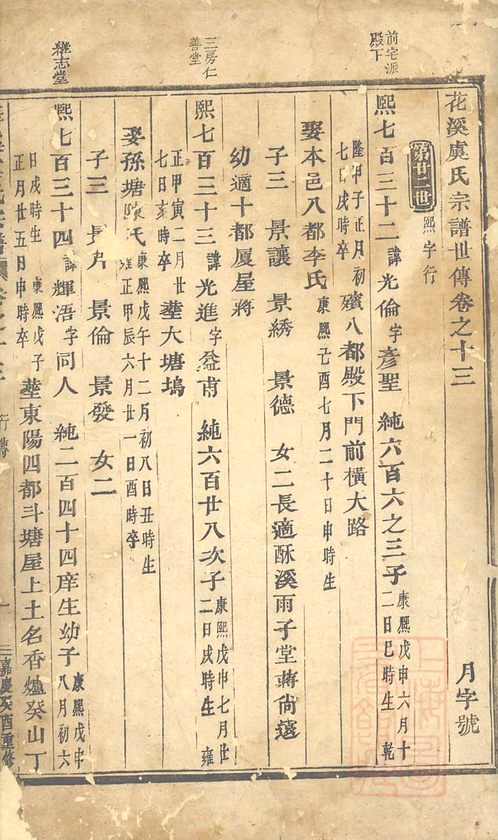 前宅派
殿下
三房仁
善堂
继志堂
花溪虞氏宗譜世傳卷之十三 月字號
第廿二世 熙字行
熙七百三十二 諱光倫字彥聖 純六百六之三子 康熙戊申六月十
二日巳時生 乾
隆甲子正月初
七日戌時卒 殯八都殿下門前橫大路
娶本邑八都李氏 康熙己酉七月二十日申時生
子三 景讓 景綉 景德 女二長適酥溪雨子堂蔣尙蔻
幼適十都厦屋蔣
熙七百三十三 諱光進字益甫 純六百廿八次子 康熙戊申七月廿
二日戌時生 雍
正甲寅二月廿
七日亥時卒 塟大塘塢
娶孫塘陳氏 康熙戊午十二月初八日丑時生
雍正甲辰六月廿一日酉時卒
子三 景倫 景發 女二
熙七百三十四 諱輝浯字同人 純二百四十四庠生幼子 康熙戊申
八月初六
日戌時生 康熙戊子
正月廿五日申時卒 塟東陽四都斗塘屋上土名香爐癸山丁
嘉慶癸酉重修